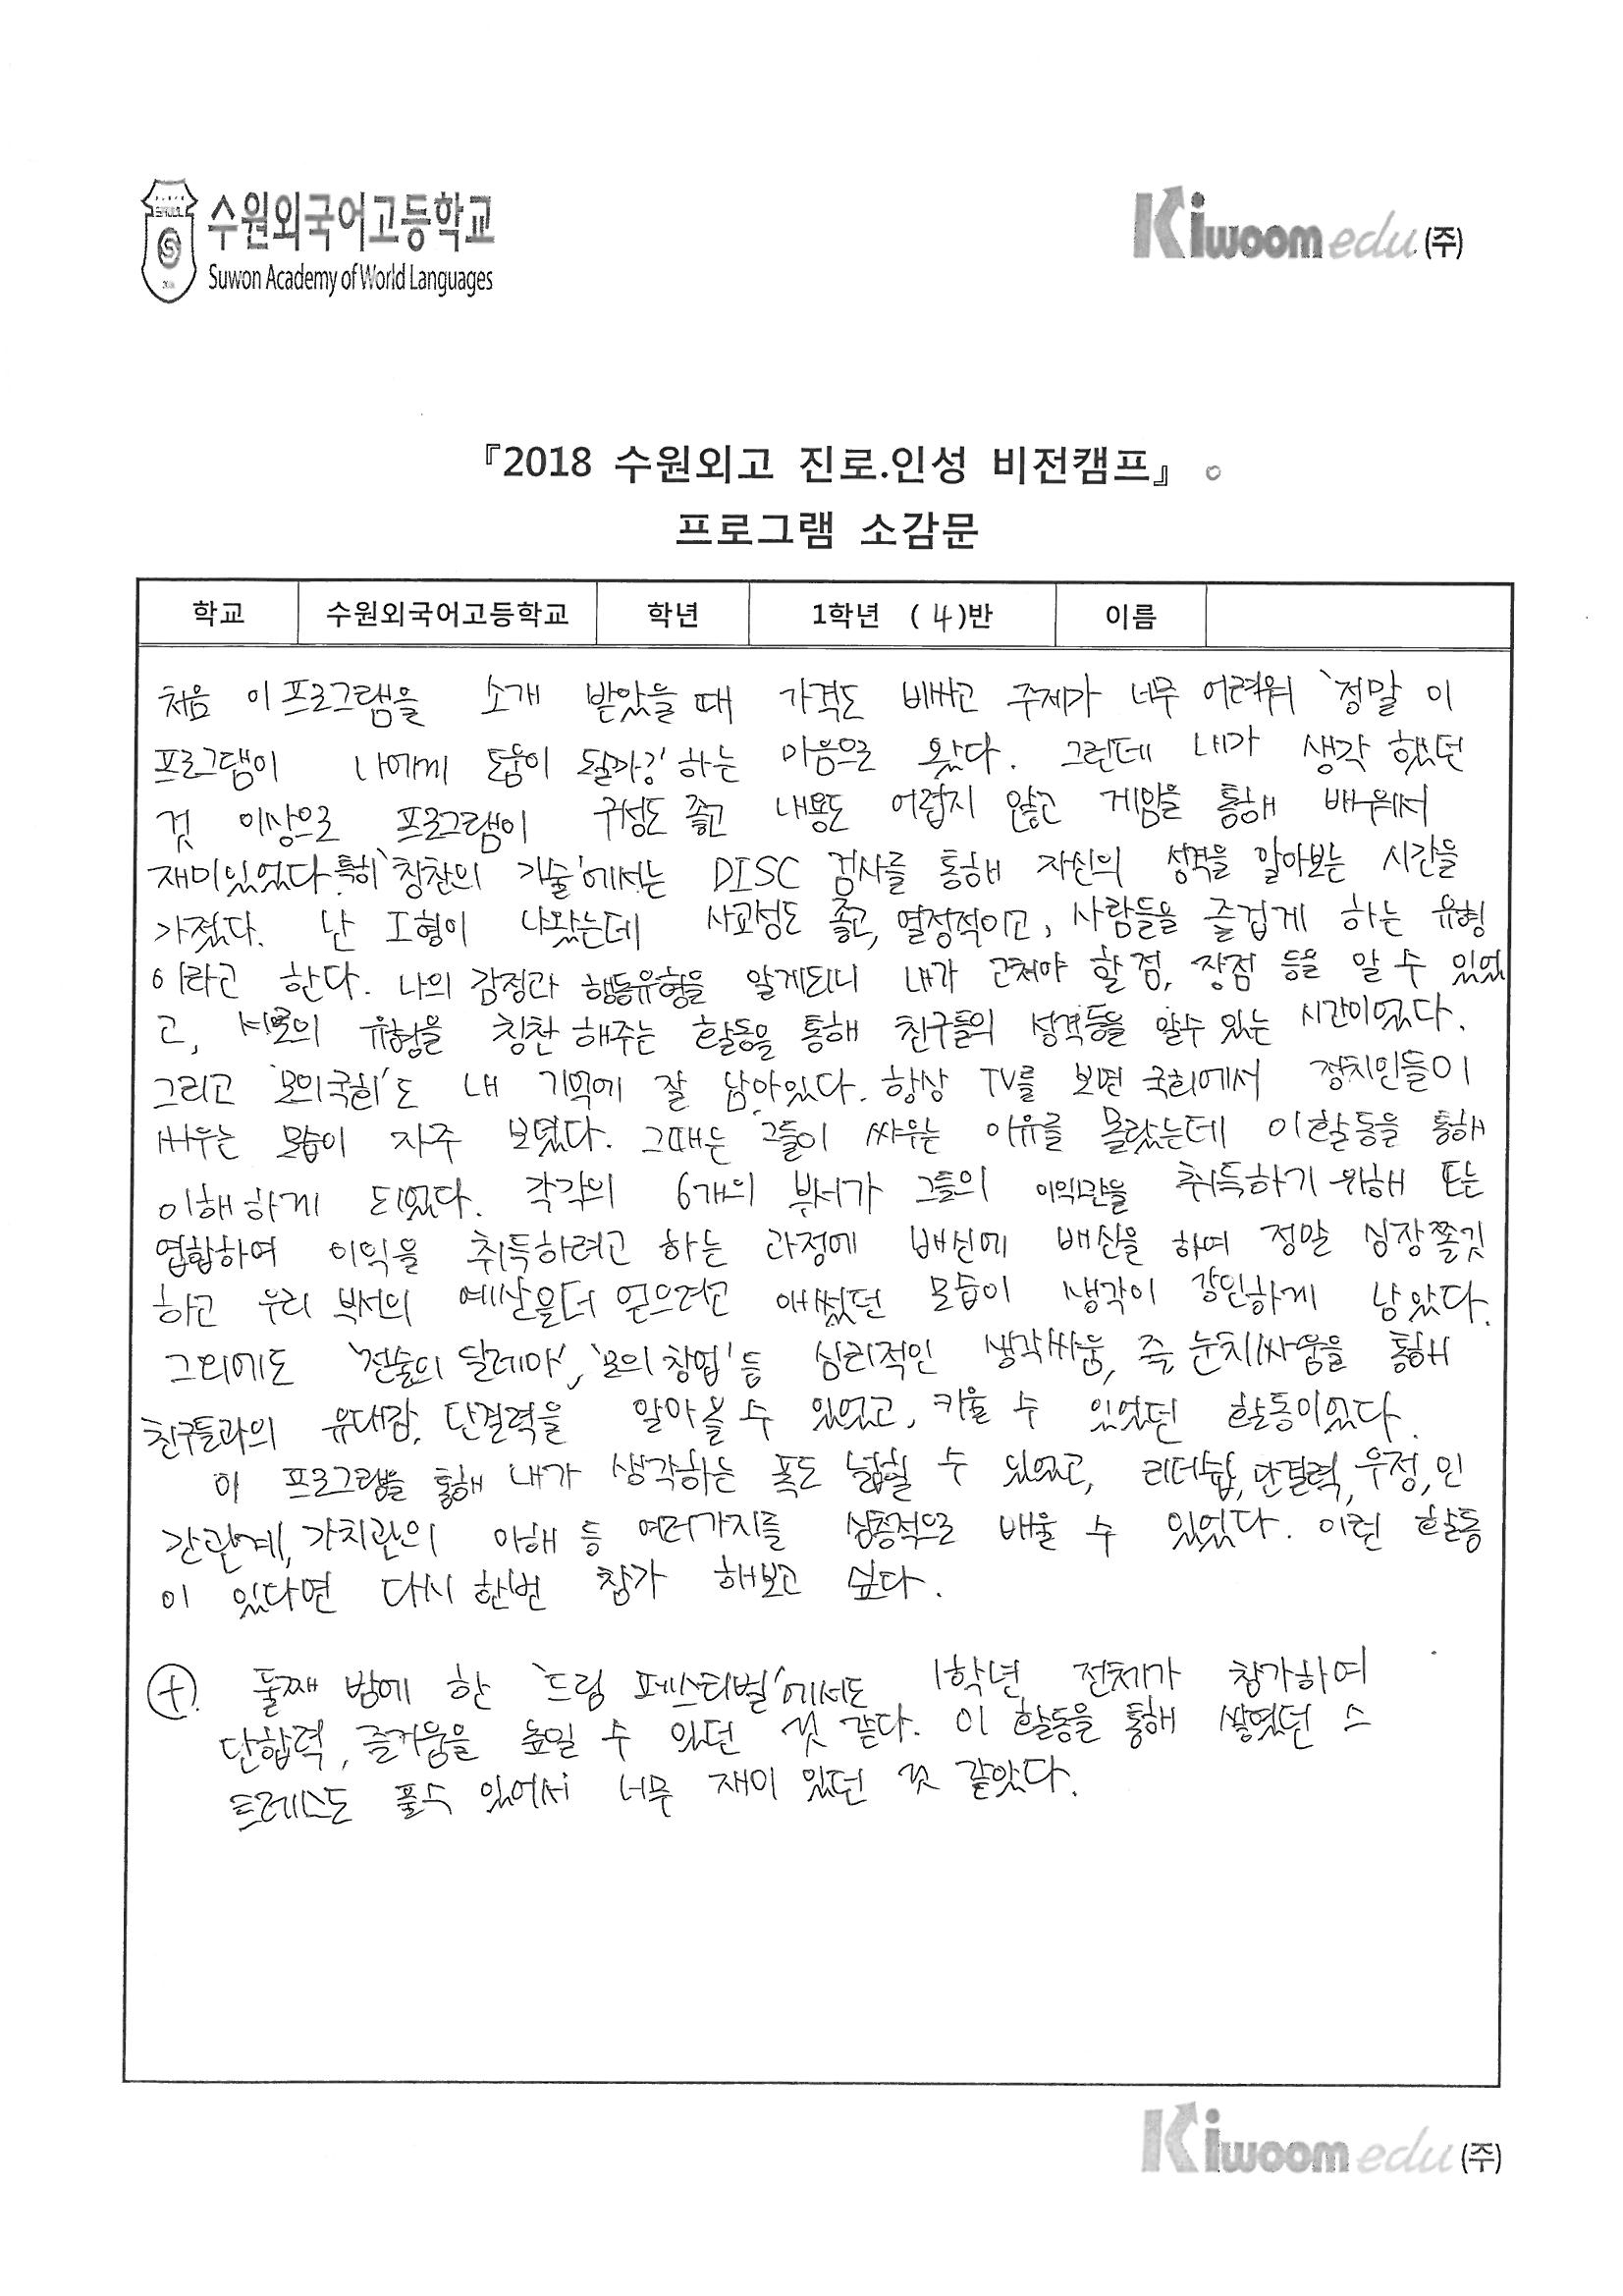 수원외국어고등학교
Suwon Academy of World Languages
Kiwoom edu (주)
『2018 수원외고 진로.인성 비전캠프』
프로그램 소감문
학교 수원외국어고등학교 학년 1학년 ( 4 )반 이름
처음 이 프로그램을 소개 받았을 때 가격도 비싸고 주제가 너무 어려워 '정말 이
프로그램이 나에게 도움이 될까?' 하는 마음으로 왔다. 그런데 내가 생각 했던
것 이상으로 프로그램이 구성도 좋고 내용도 어렵지 않고 게임을 통해 배워서
재미있었다. 특히 '칭찬의 기술'에서는 DISC 검사를 통해 자신의 성격을 알아보는 시간을
가졌다. 난 I형이 나왔는데 사교성도 좋고, 열정적이고, 사람들을 즐겁게 하는 유형
이라고 한다. 나의 감정과 행동유형을 알게되니 내가 고쳐야 할 점, 장점 등을 알 수 있었
고, 서로의 유형을 칭찬 해주는 활동을 통해 친구들의 성격들을 알수 있는 시간이었다.
그리고 '모의국회'도 내 기억에 잘 남아있다. 항상 TV를 보면 국회에서 정치인들이
싸우는 모습이 자주 보였다. 그때는 그들이 싸우는 이유를 몰랐는데 이 활동을 통해
이해하게 되었다. 각각의 6개의 부서가 그들의 이익만을 취득하기 위해 또는
연합하여 이익을 취득하려고 하는 과정에 배신에 배신을 하며 정말 심장쫄깃
하고 우리 부서의 예산을 더 얻으려고 애썼던 모습이 생각이 강인하게 남았다.
그외에도 '전술의 딜레마', '모의 창업' 등 심리적인 생각싸움, 즉 눈치싸움을 통해
친구들과의 유대감, 단결력을 알아볼 수 있었고, 키울 수 있었던 활동이었다.
이 프로그램을 통해 내가 생각하는 폭도 넓힐 수 있었고, 리더쉽, 단결력, 우정, 인
간관계, 가치관의 이해 등 여러가지를 심층적으로 배울 수 있었다. 이런 활동
이 있다면 다시 한번 참가 해보고 싶다.
+ 둘째 밤에 한 '드림 페스티벌'에서도 1학년 전체가 참가하여
단합력, 즐거움을 높일 수 있던 것 같다. 이 활동을 통해 쌓였던 스
트레스도 풀수 있어서 너무 재미 있던 것 같았다.
Kiwoom edu (주)